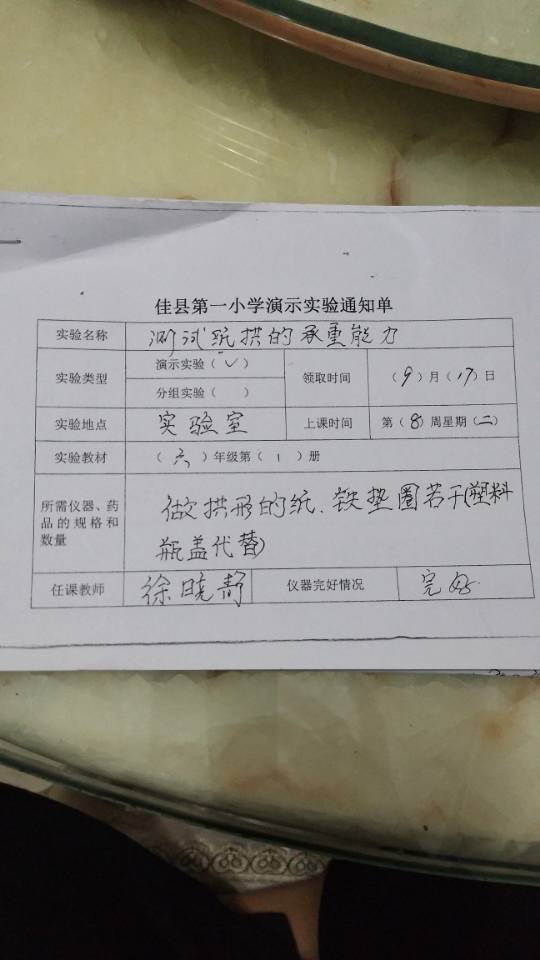 佳县第一小学演示实验通知单
实验名称 测试纸拱的承重能力
实验类型 演示实验（✓） 领取时间 （9）月（17）日
分组实验（ ）
实验地点 实验室 上课时间 第（8）周星期（二）
实验教材 （六）年级第（1）册
所需仪器、药 做拱形的纸、铁垫圈若干(塑料
品的规格和
数量 瓶盖代替)
任课教师 徐晓静 仪器完好情况 完好.